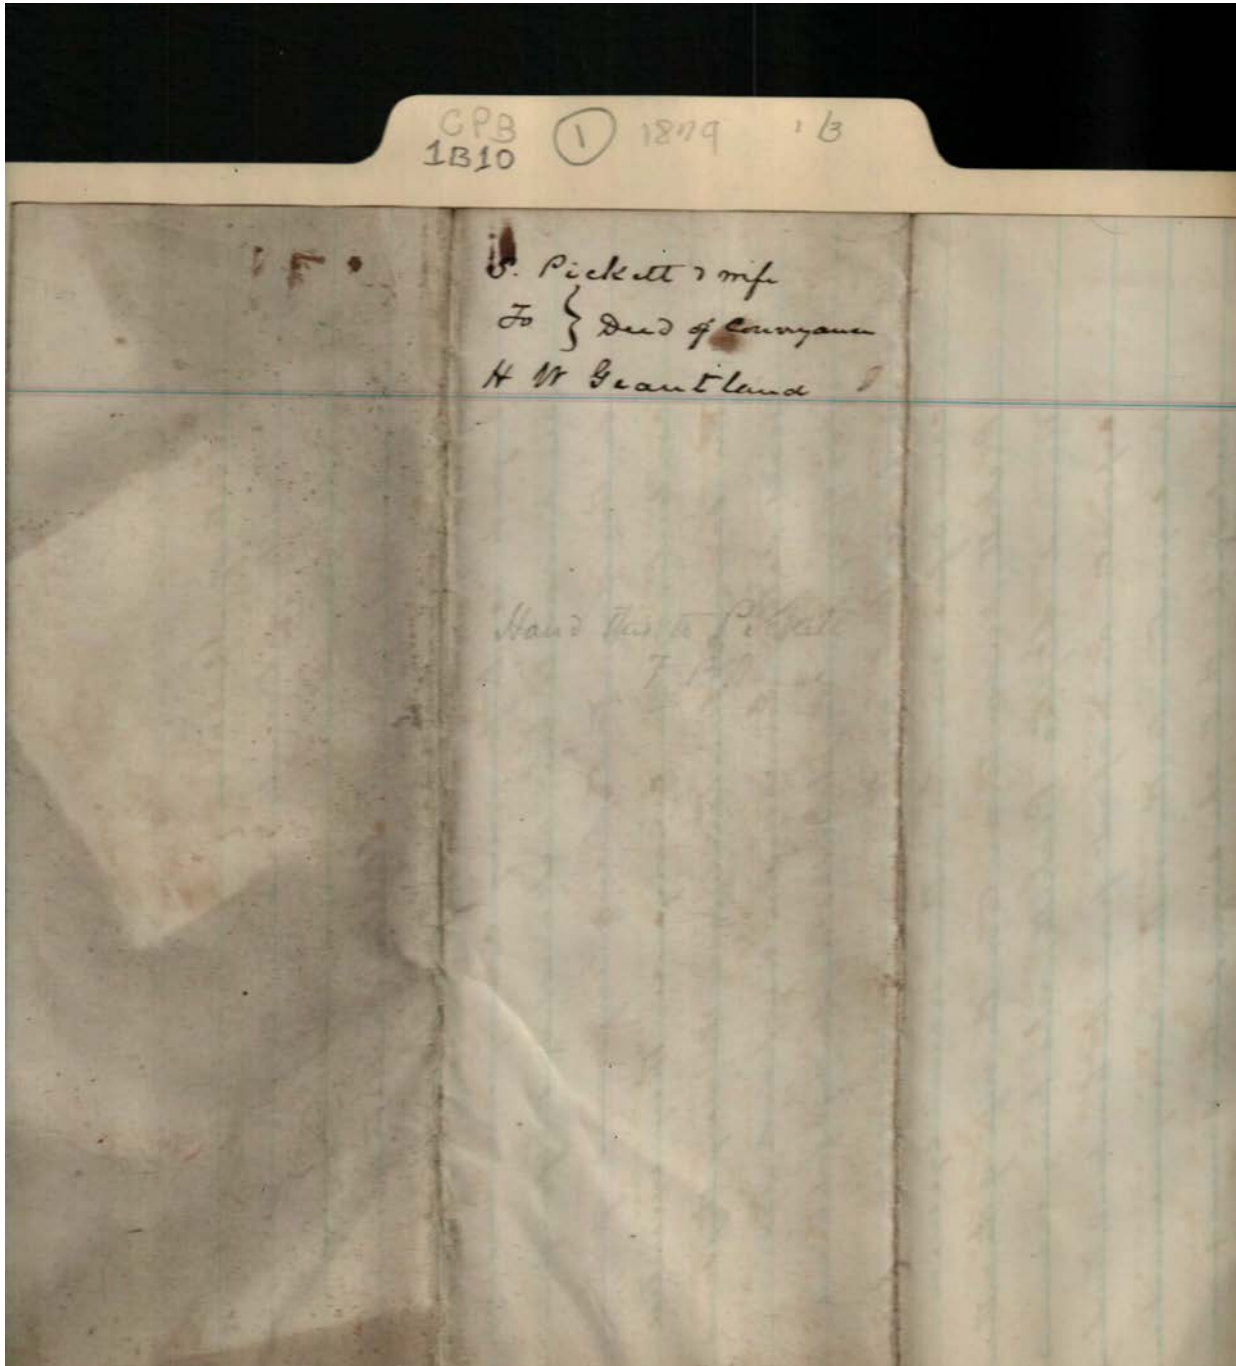 CPB ① 1879 1/3
1B10
S. Pickett & wife
To } Deed of Conveyance
H W Grantland
Hand this to Pickett